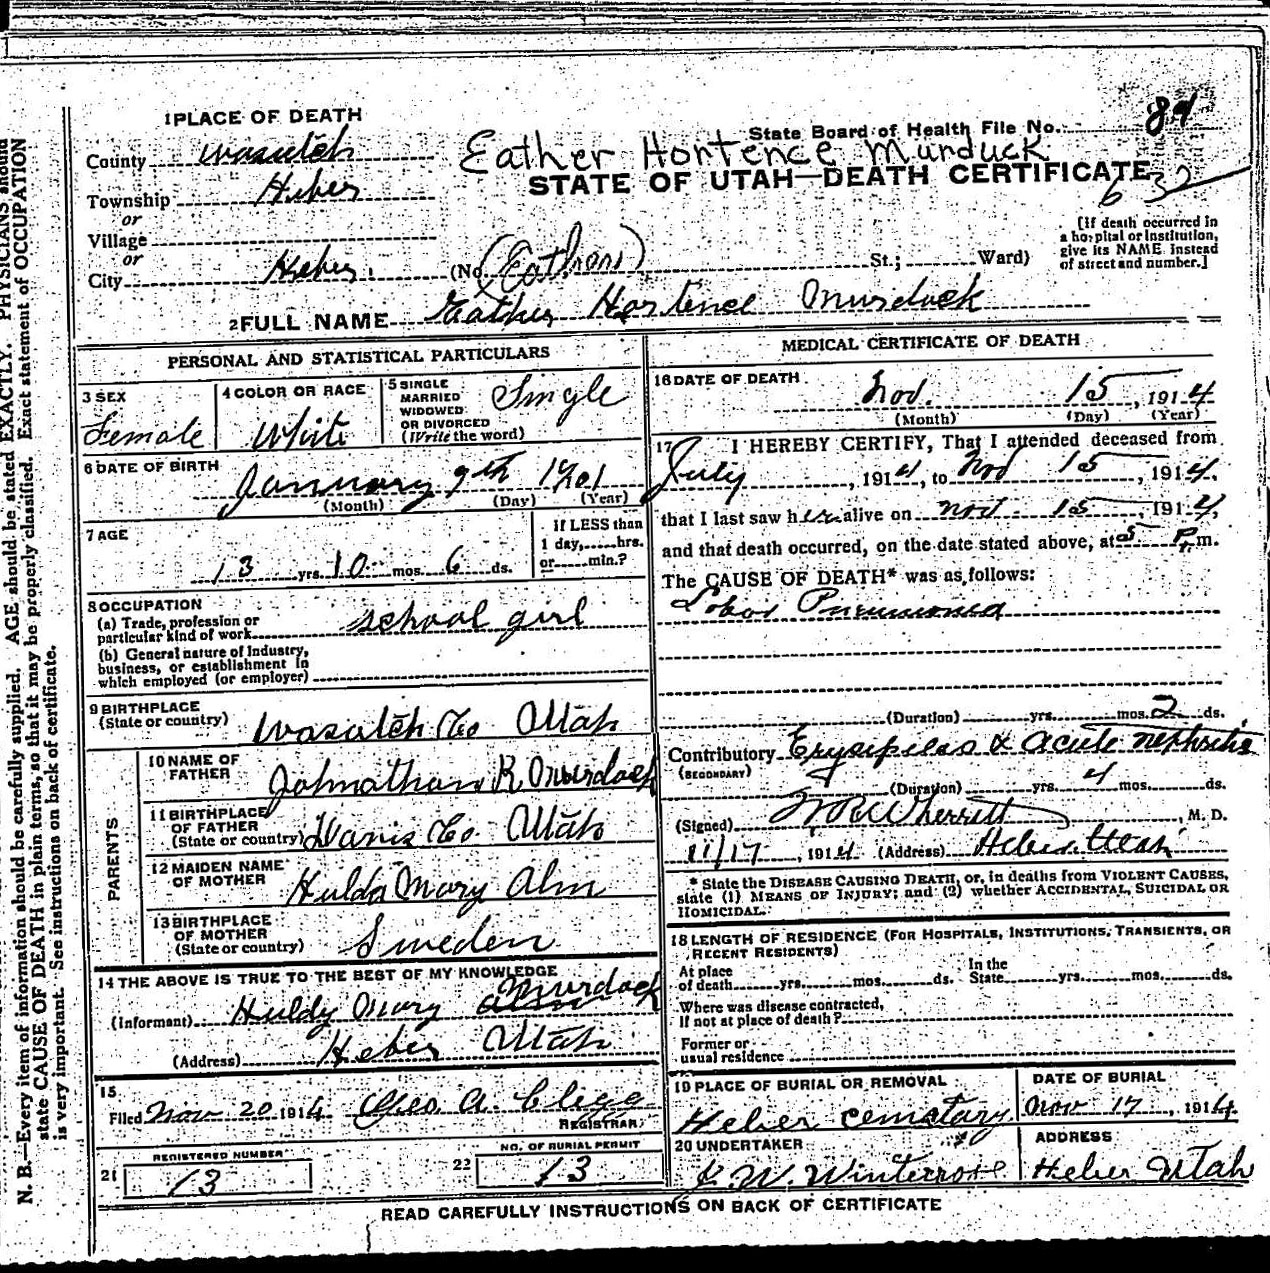 1 PLACE OF DEATH
State Board of Health File No. 84
County Wasatch
Eather Hortence Murduck
STATE OF UTAH—DEATH CERTIFICATE
632
Township Heber
or
Village
or
City Heber (No. (Eathons) St.; Ward)
[If death occurred in a hospital or institution, give its NAME instead of street and number.]
2 FULL NAME Eather Hortence Murdock
PERSONAL AND STATISTICAL PARTICULARS
3 SEX Female
4 COLOR OR RACE White
5 SINGLE MARRIED WIDOWED OR DIVORCED (Write the word) Single
6 DATE OF BIRTH
January 9th 1901
(Month) (Day) (Year)
7 AGE
13 yrs. 10 mos. 6 ds.
If LESS than 1 day, hrs. or min.?
8 OCCUPATION
(a) Trade, profession or particular kind of work school girl
(b) General nature of Industry, business, or establishment in which employed (or employer)
9 BIRTHPLACE
(State or country) Wasatch Co Utah
PARENTS
10 NAME OF FATHER Johnathan R. Murdock
11 BIRTHPLACE OF FATHER (State or country) Davis Co. Utah
12 MAIDEN NAME OF MOTHER Hulda Mary Alm
13 BIRTHPLACE OF MOTHER (State or country) Sweden
14 THE ABOVE IS TRUE TO THE BEST OF MY KNOWLEDGE
(Informant) Huldy Mary Murdock
(Address) Heber Utah
15
Filed Nov 20 1914 Geo. A. Clegg
REGISTRAR
REGISTERED NUMBER
21 13
NO. OF BURIAL PERMIT
22 13
MEDICAL CERTIFICATE OF DEATH
16 DATE OF DEATH
Nov. 15, 1914
(Month) (Day) (Year)
17 I HEREBY CERTIFY, That I attended deceased from
July, 1914, to Nov 15, 1914,
that I last saw her alive on Nov. 15, 1914,
and that death occurred, on the date stated above, at 5 P. m.
The CAUSE OF DEATH* was as follows:
Lobar Pneumonia
(Duration) yrs. mos. 2 ds.
Contributory Erysipelas & acute nephritis
(SECONDARY)
(Duration) yrs. 4 mos. ds.
(Signed) W R Wherritt, M. D.
11/17, 1914 (Address) Heber Utah
* State the DISEASE CAUSING DEATH, or, in deaths from VIOLENT CAUSES,
state (1) MEANS OF INJURY; and (2) whether ACCIDENTAL, SUICIDAL OR
HOMICIDAL.
18 LENGTH OF RESIDENCE (FOR HOSPITALS, INSTITUTIONS, TRANSIENTS, OR
RECENT RESIDENTS)
At place of death yrs. mos. ds. In the State yrs. mos. ds.
Where was disease contracted,
if not at place of death?
Former or
usual residence
19 PLACE OF BURIAL OR REMOVAL
Heber cemetary
DATE OF BURIAL
Nov 17, 1914
20 UNDERTAKER
J. W. Winterrose
ADDRESS
Heber Utah
READ CAREFULLY INSTRUCTIONS ON BACK OF CERTIFICATE
N. B.—Every item of information should be carefully supplied. AGE should be stated EXACTLY. PHYSICIANS should
state CAUSE OF DEATH in plain terms, so that it may be properly classified. Exact statement of OCCUPATION
is very important. See instructions on back of certificate.